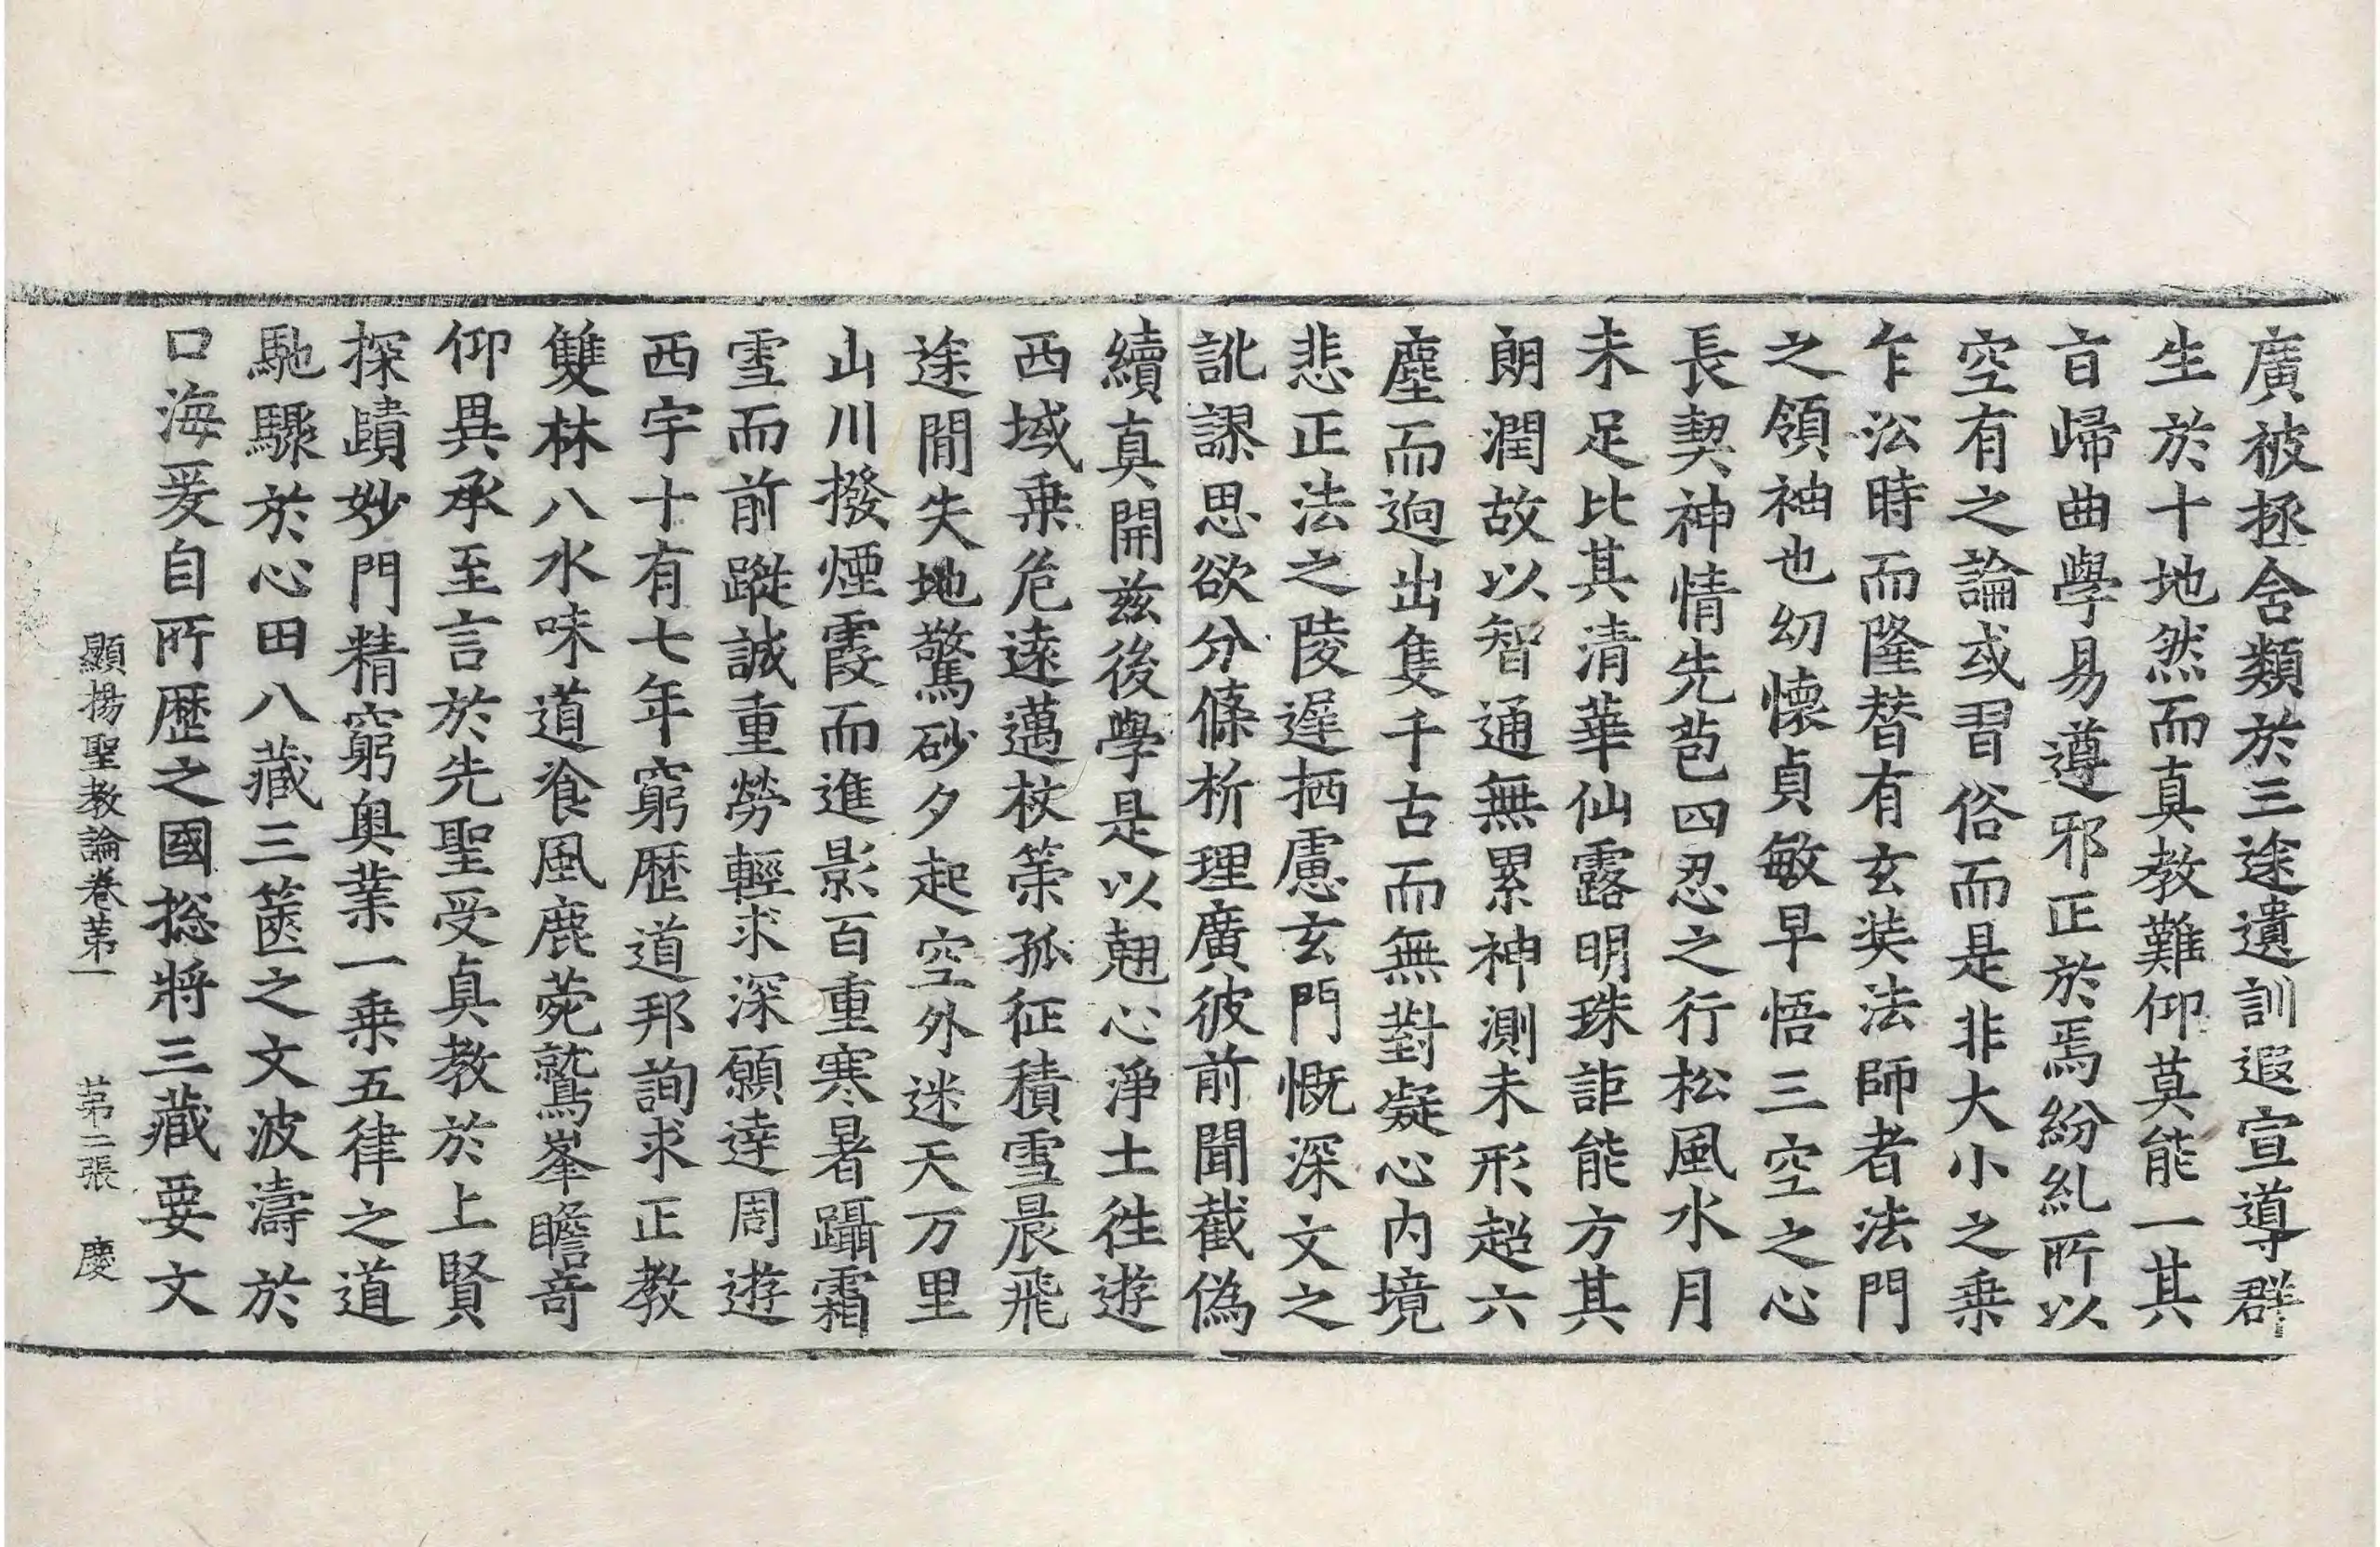 廣被拯含類於三途遺訓遐宣導群
生於十地然而真教難仰莫能一其
旨歸曲學易遵邪正於焉紛糺所以
空有之論或習俗而是非大小之乗
乍㳂時而隆替有玄奘法師者法門
之領袖也幼懷貞敏早悟三空之心
長契神情先苞四忍之行松風水月
未足比其清華仙露明珠詎能方其
朗潤故以智通無累神測未形超六
塵而迥出隻千古而無對凝心内境
悲正法之陵遲栖慮玄門慨深文之
訛謬思欲分條析理廣彼前聞截偽
續真開茲後學是以翹心淨土往遊
西域乗危遠邁杖策孤征積雪晨飛
途閒失地驚砂夕起空外迷天万里
山川撥煙霞而進影百重寒暑躡霜
雪而前蹤誠重勞輕求深願達周遊
西宇十有七年窮歷道邦詢求正教
雙林八水味道飡風鹿菀鷲峯瞻奇
仰異承至言於先聖受真教於上賢
探賾妙門精窮奥業一乗五律之道
馳驟於心田八藏三篋之文波濤於
口海爰自所歷之國捴將三藏要文
顯揚聖教論卷苐一 苐二張 慶